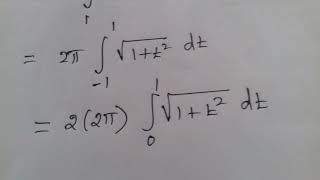 ∫₁
= 2π ∫₋₁¹ √(1+t²) dt
= 2(2π) ∫₀¹ √(1+t²) dt